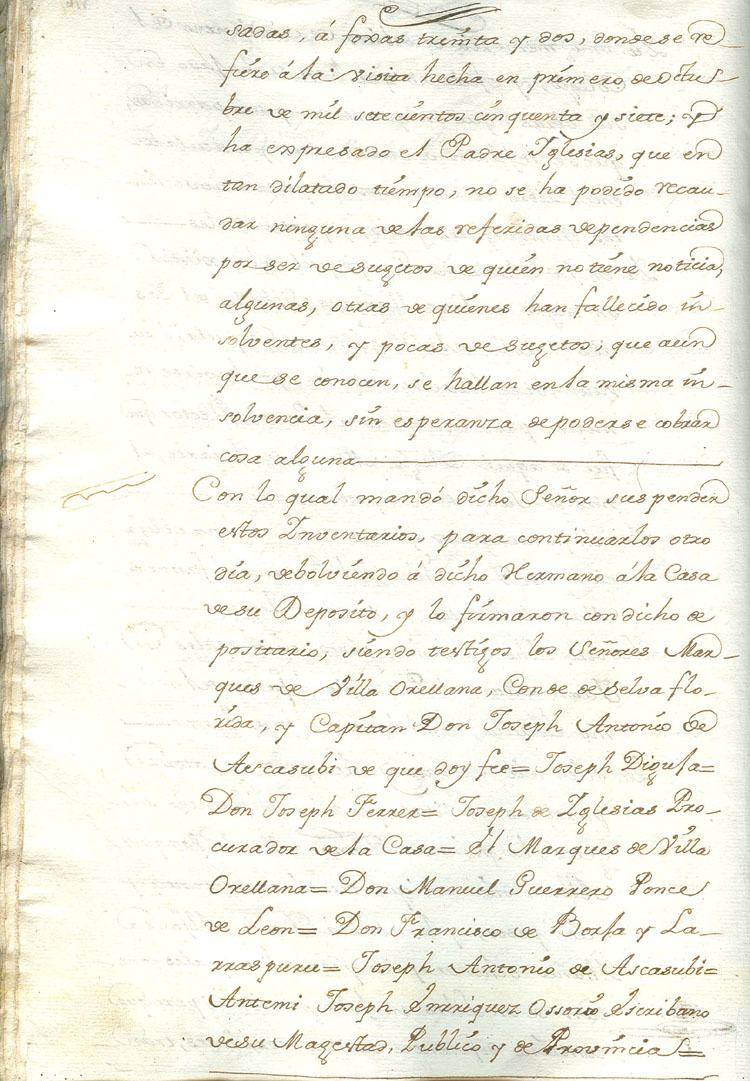 sadas, á foxas treinta y dos, donde se re
fiere á la visita hecha en primero de Octu-
bre de mil setecientos cinquenta y siete; y
ha expresado el Padre Yglesias, que en
tan dilatado tiempo, no se ha podido recau-
dar ninguna de las referidas dependencias
por ser de sugetos de quien no tiene noticia,
algunas, otras de quienes han fallecido in-
solventes, y pocas de sugetos, que aun
que se conocen, se hallan en la misma in-
solvencia, sin esperanza de poderse cobrar
cosa alguna
Con lo qual mandó dicho Señor suspender
estos Inventarios, para continuarlos otro
dia, debolviendo á dicho Hermano á la Casa
de su Deposito, y lo firmaron con dicho de
positario, siendo testigos los Señores Mar-
ques de Villa Orellana, Conde de Selva flo-
rida, y Capitan Don Joseph Antonio de
Ascasubi de que doy fee= Joseph Diguja=
Don Joseph Ferrer= Joseph de Yglesias Pro-
curador de la Casa= El Marques de Villa
Orellana= Don Manuel Guerrero Ponce
de Leon= Don Francisco de Borja y La-
rraspuru= Joseph Antonio de Ascasubi=
Antemi Joseph Enrriquez Ossorio Escribano
de su Magestad, Publico y de Provincia=